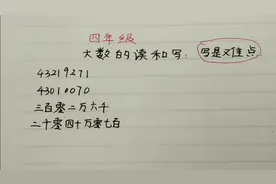 四年级
大数的读和写：写是又难点
43219271
43010070
三百零二万六千
二千零四十万零七百